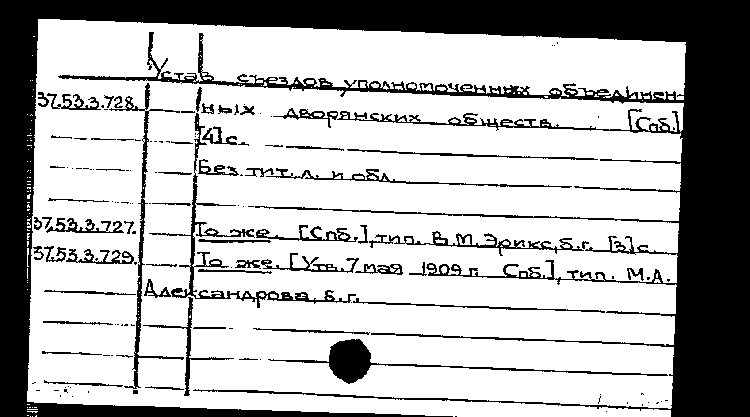 Устав съездов уполномоченных объединен-
37.53.3.728. ных дворянских обществ. [Спб.]
[4]с.
Без тит. л. и обл.
37.53.3.727. То же. [Спб.], тип. В.М. Эрикс, б.г. [3]с.
37.53.3.729. То же. [Утв. 7 мая 1909 г. Спб.], тип. М.А.
Александрова, б.г.